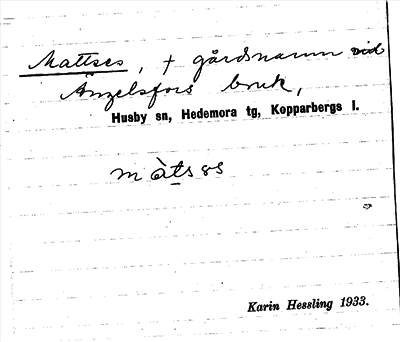 Mattses, † gårdsnamn vid
Ängelsfors bruk,
Husby sn, Hedemora tg, Kopparbergs l.
màtsəs
Karin Hessling 1933.